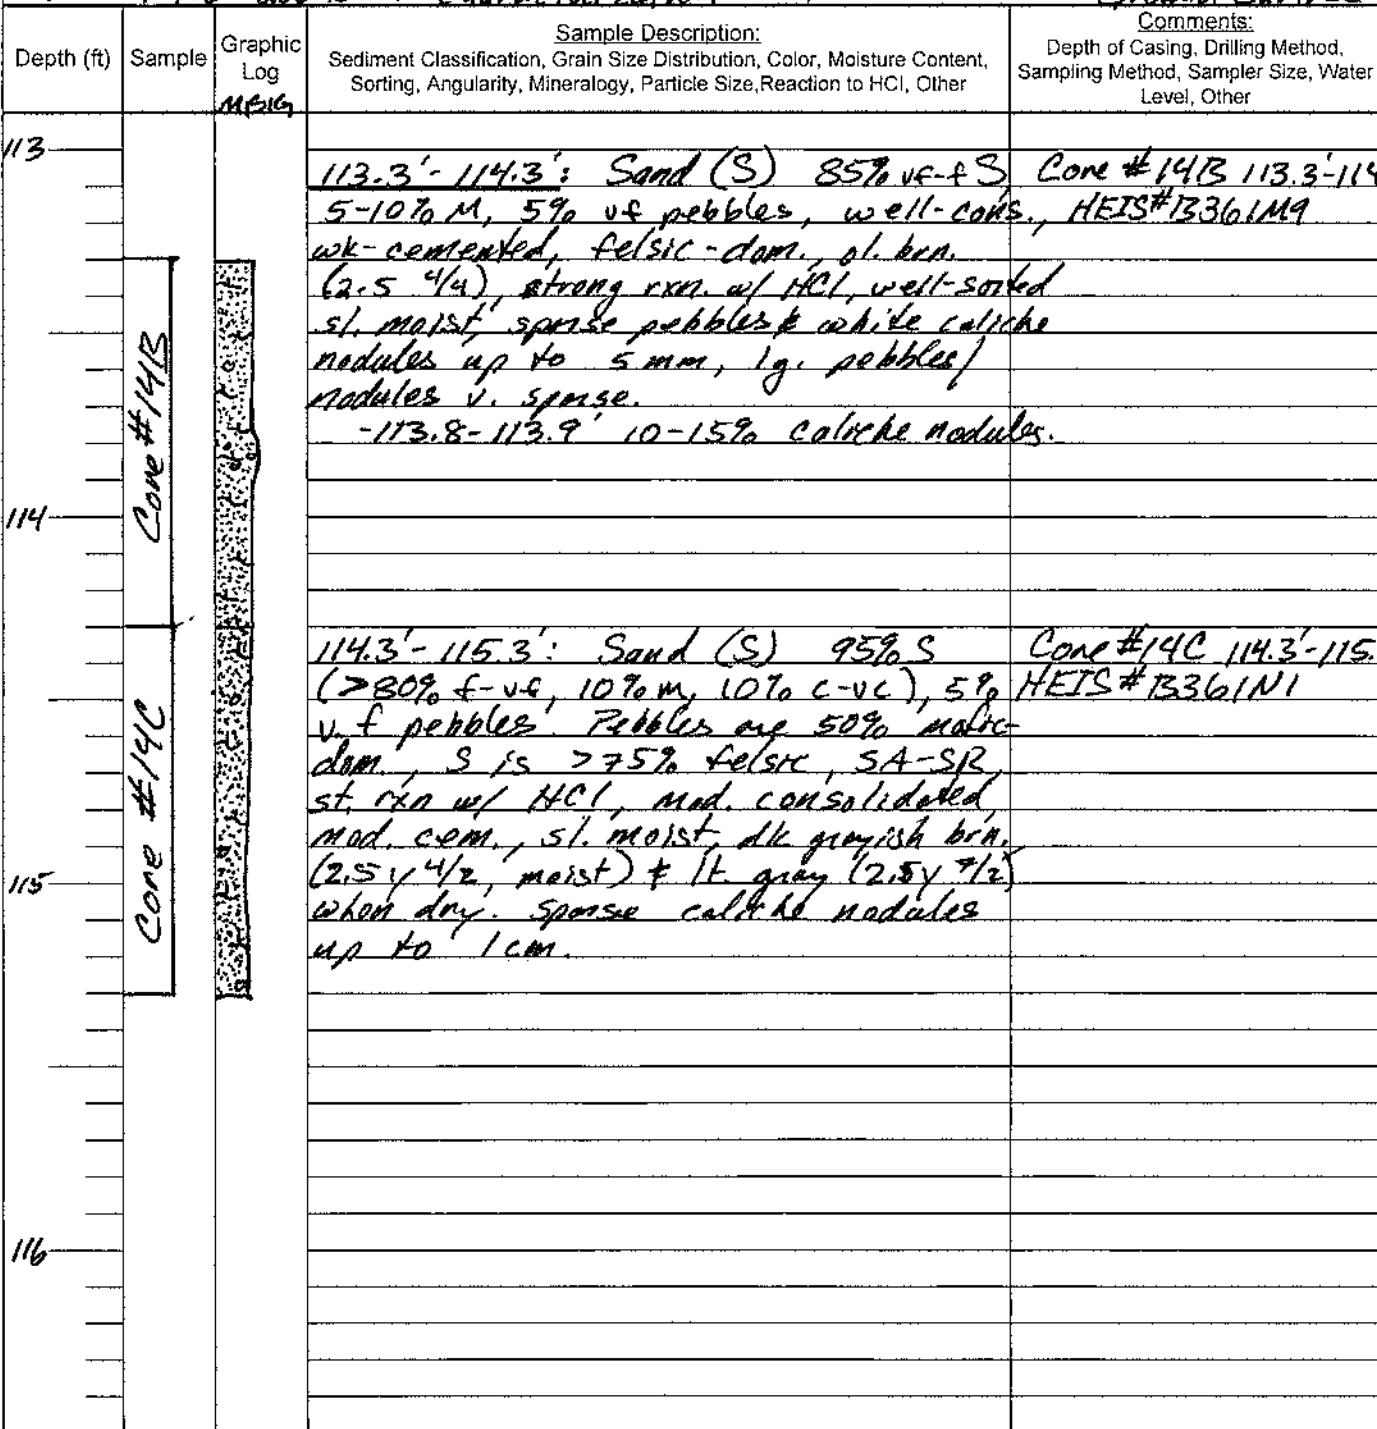 Depth (ft)
Sample
Graphic
Log
MBIG
Sample Description:
Sediment Classification, Grain Size Distribution, Color, Moisture Content,
Sorting, Angularity, Mineralogy, Particle Size,Reaction to HCl, Other
Comments:
Depth of Casing, Drilling Method,
Sampling Method, Sampler Size, Water
Level, Other
113
114
115
116
Core #14B
Core #14C
113.3'- 114.3': Sand (S) 85% vf-f S,
5-10% M, 5% vf pebbles, well-cons.,
wk-cemented, felsic-dom., ol. brn.
(2.5 4/4), strong rxn. w/ HCl, well-sorted
sl. moist, sparse pebbles & white caliche
nodules up to 5 mm, lg. pebbles/
nodules v. sparse.
-113.8-113.9' 10-15% caliche nodules.
Core #14B 113.3'-114
HEIS# B361M9
114.3'- 115.3': Sand (S) 95% S
(>80% f-vf, 10% m, 10% c-vc), 5%
v. f pebbles. Pebbles are 50% mafic-
dom., S is >75% felsic, SA-SR,
st. rxn w/ HCl, mod. consolidated,
mod. cem., sl. moist, dk grayish brn.
(2.5y 4/2, moist) & lt. gray (2.5y 7/2)
when dry. Sparse caliche nodules
up to 1cm.
Core #14C 114.3'-115.
HEIS# B361N1